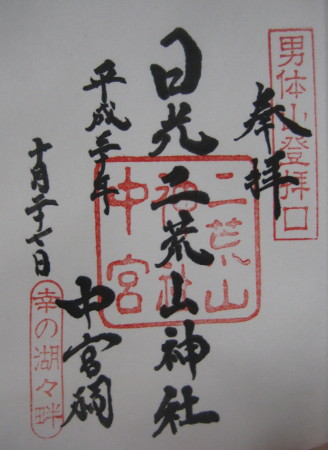 男体山登拝口
奉拝
日光二荒山神社
二荒山
神社
中宮
中宮祠
平成三年
十月二十七日
幸の湖々畔